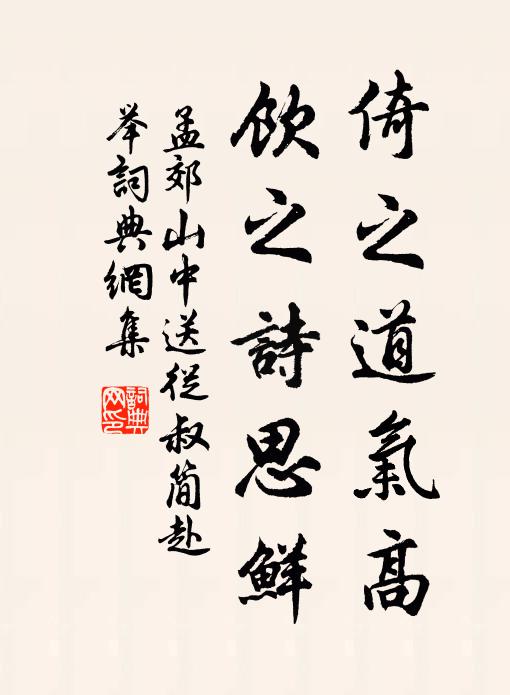 倚之道氣高
飲之詩思鮮
孟郊山中送從叔簡赴
举詞典網集
詞典
网印